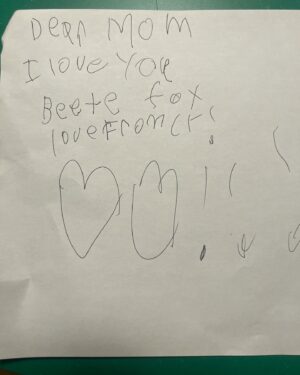 Dear MOM
I love You
Beete fox
love From